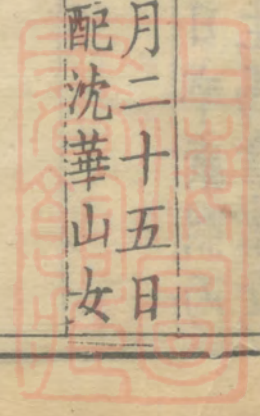 月二十五日
配沈華山女